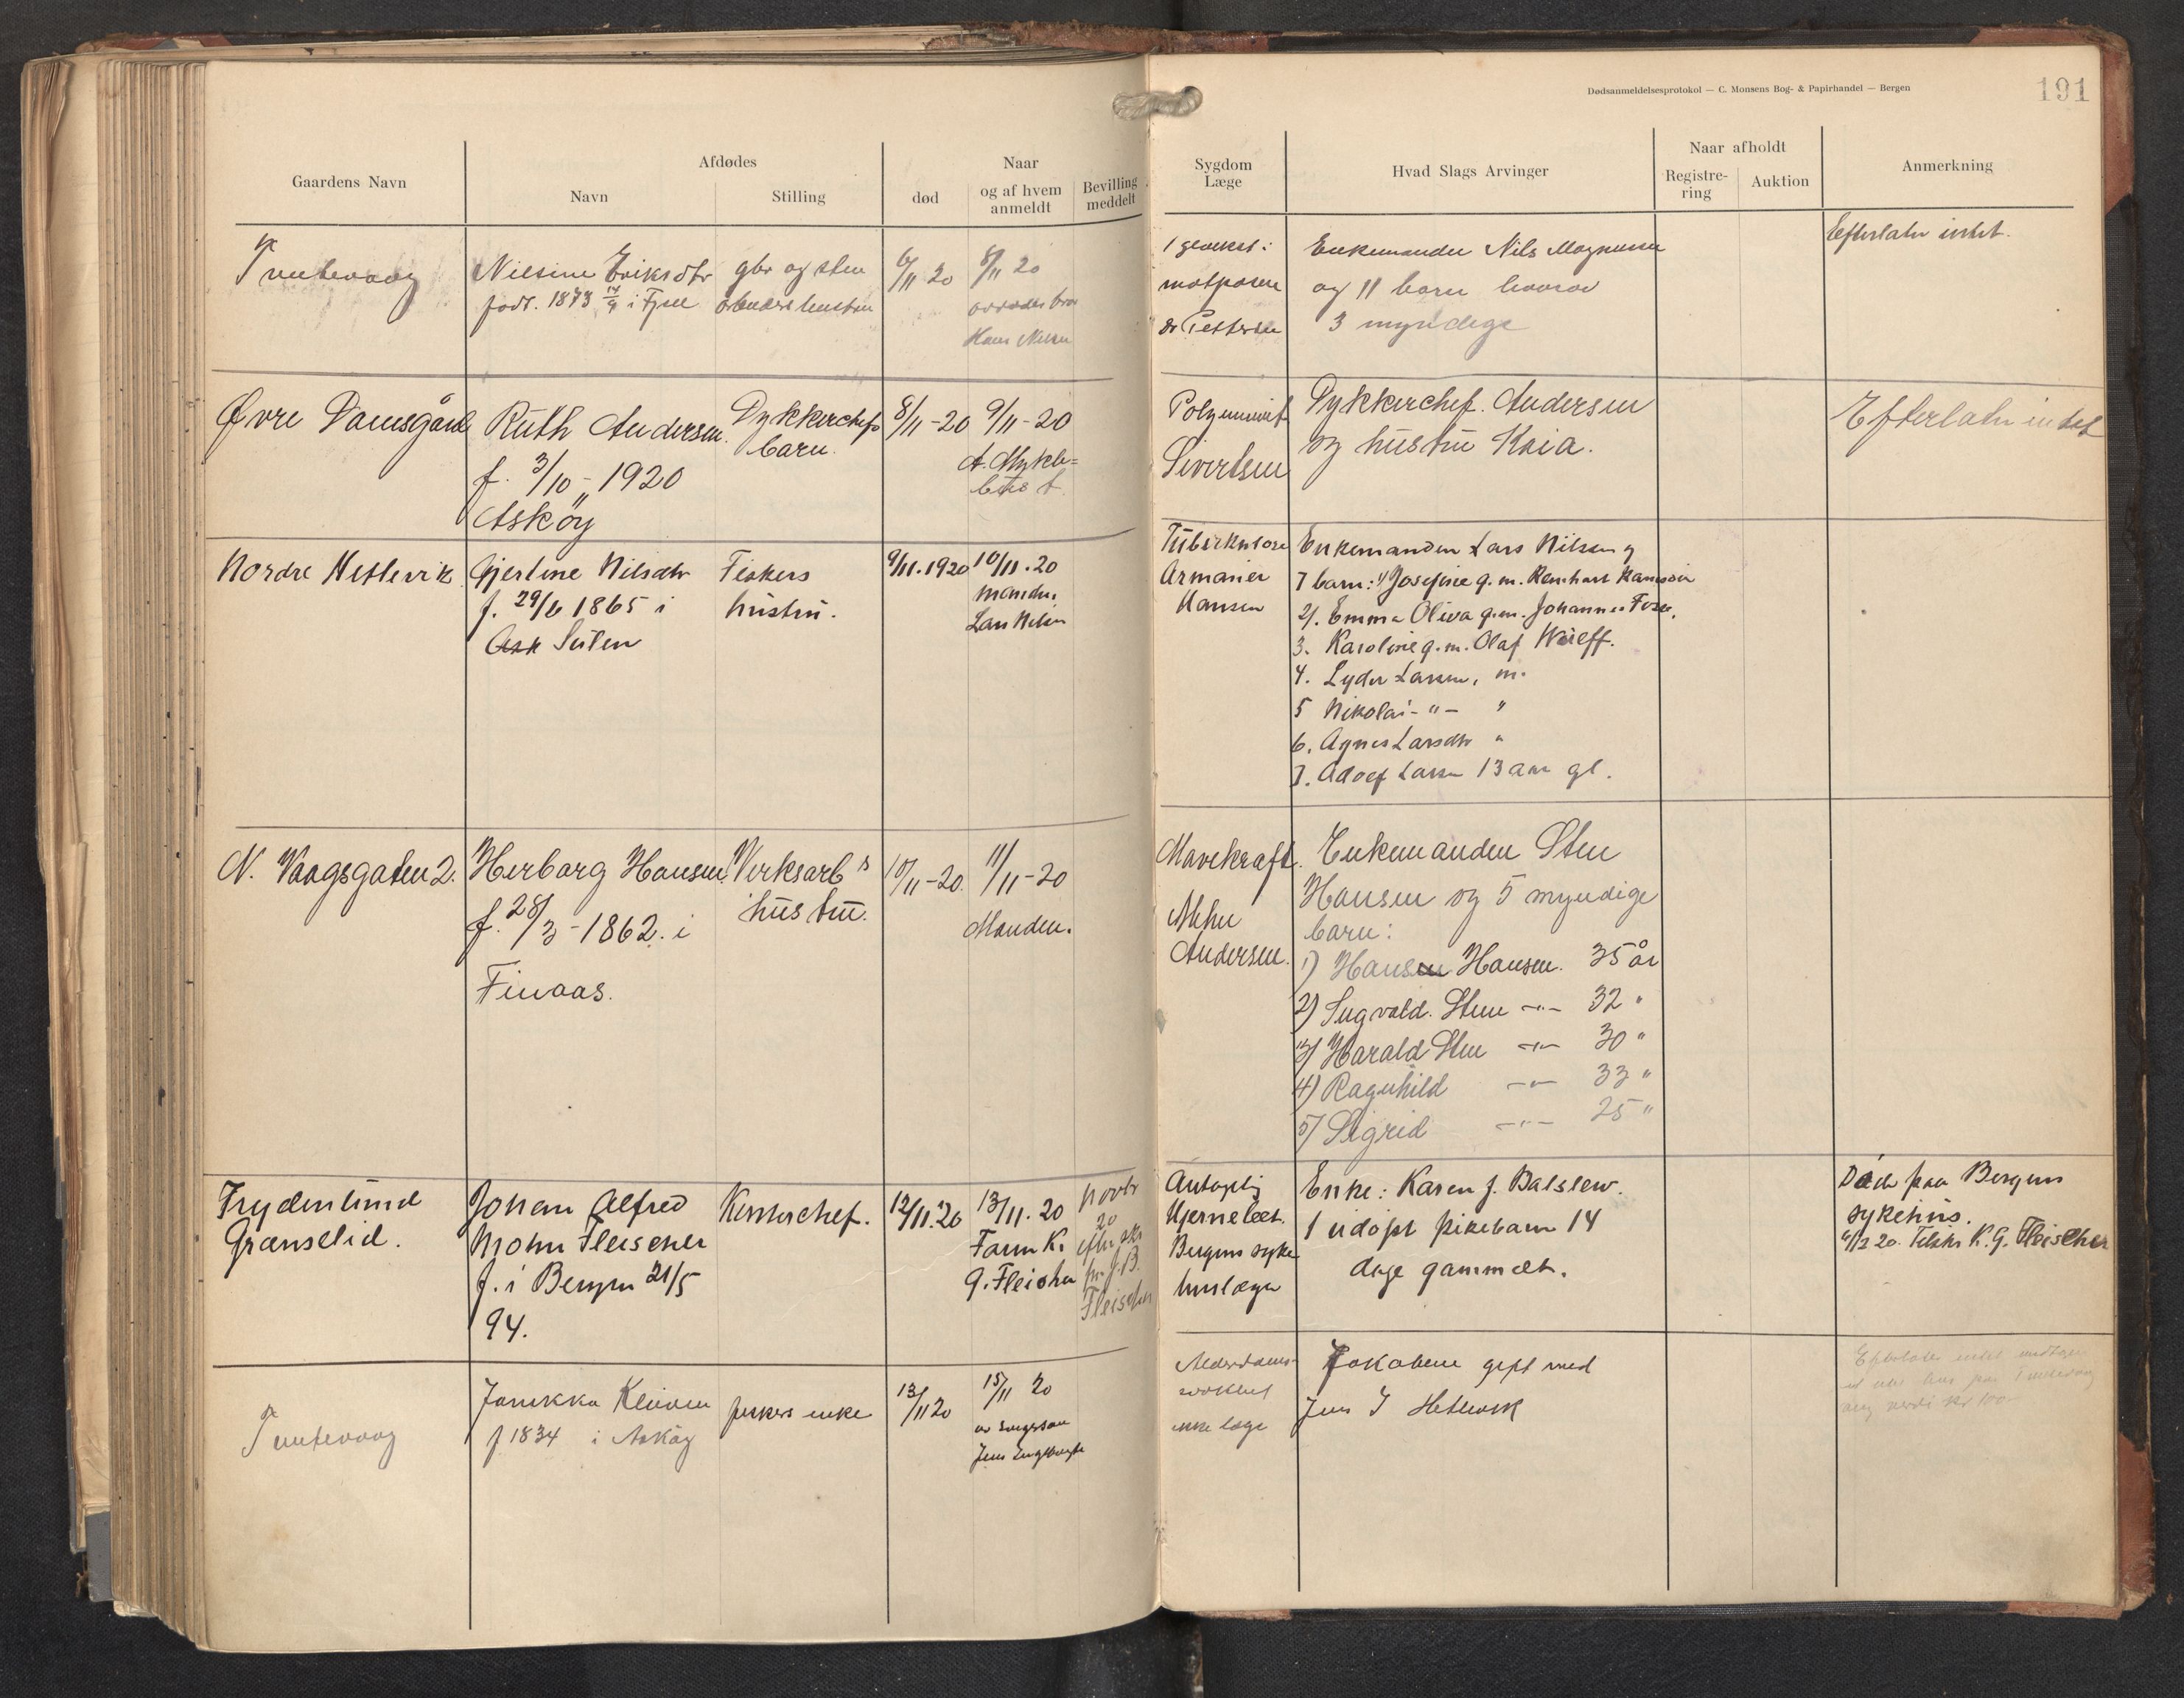 Dødsanmeldelsesprotokol — C. Monsens Bog- & Papirhandel — Bergen
191
Gaardens Navn
Afdødes
Navn
Stilling
Naar
død
og af hvem anmeldt
Bevilling meddelt
Sygdom
Læge
Hvad Slags Arvinger
Naar afholdt
Registrering
Auktion
Anmerkning
Nilsine Eriksdtr
født. 1873 14/9 i
gbr og sten
6/11 20
8/11 20
Hans Nilsen
dr Pettersen
Enkemanden Nils Magnussen
og 11 barn hvorav
3 myndige
Efterlater intet.
Øvre Damsgård
Ruth Andersen.
f. 3/10 - 1920
Askøy
Dykkerchefs
barn.
8/11-20
9/11-20
A. Mykle=
bust
Sivertsen
Dykkerchef. Andersen
og hustru Kaia.
Efterlater intet
Nordre Hetlevik
Gjertine Nilsdtr
f. 29/6 1865 i
Ask Sulen
Fiskers
hustru.
9/11.1920
10/11.20
manden
Lars Nilsen
Tuberkulose
Armauer
Hansen
Enkemanden Lars Nilsen og
7 barn: 1) Josefine g.m.
2). Emma Oliva g.m. Johannes
3. Karoline g.m. Olaf
4. Lyder Larsen, m.
5 Nikolai - " - "
6. Agnes Larsdtr "
7. Adolf Larsen 13 aar gl.
N. Vaagsgaten 2.
Herborg Hansen.
f. 28/3 - 1862. i
Finaas.
Verksarb s
hustru.
10/11-20.
11/11-20
Manden.
Mavekræft.
Andersen.
Enkemanden Sten
Hansen og 5 myndige
barn:
1) Hansen Hansen. 35 år
2) Sigvald. Sten -"- 32 "
3) Harald Sten -"- 30 "
4) Ragnhild -"- 33 "
5) Sigrid -"- 25 "
Frydenlund
Grænselid.
Johan Alfred
Mohn Fleischer
f. i Bergen 21/5
94.
Kontorchef.
12/11.20
13/11.20
Farm K.
G. Fleischer
20
Fleischer
Bergens syke
huslæge
Enke: Karen f. Balslew.
1 udøpt pikebarn 14
dage gammelt.
Død paa Bergens
sykehus.
K. G. Fleischer
f 1834 i Askøy
fiskers enke
13/11 20
15/11 20
ikke læge
Jakobine gift med
Jens J Hetlevik